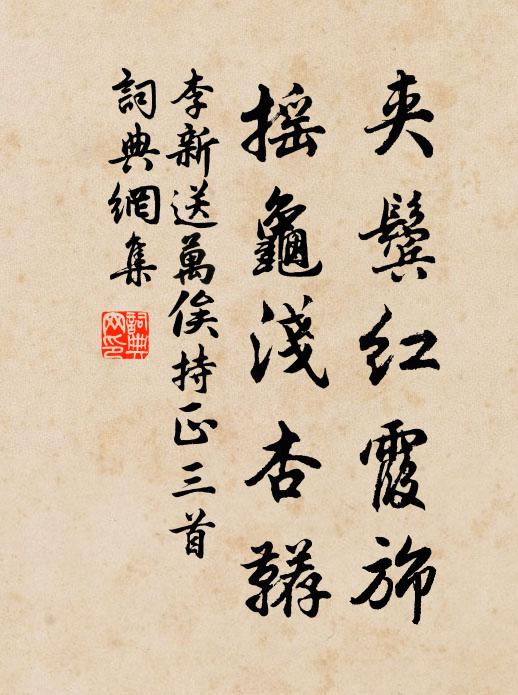 夹鬢红霞旆
摇龜淺杏鞯
李新送萬俟持正三首
詞典網集
詞典
网印